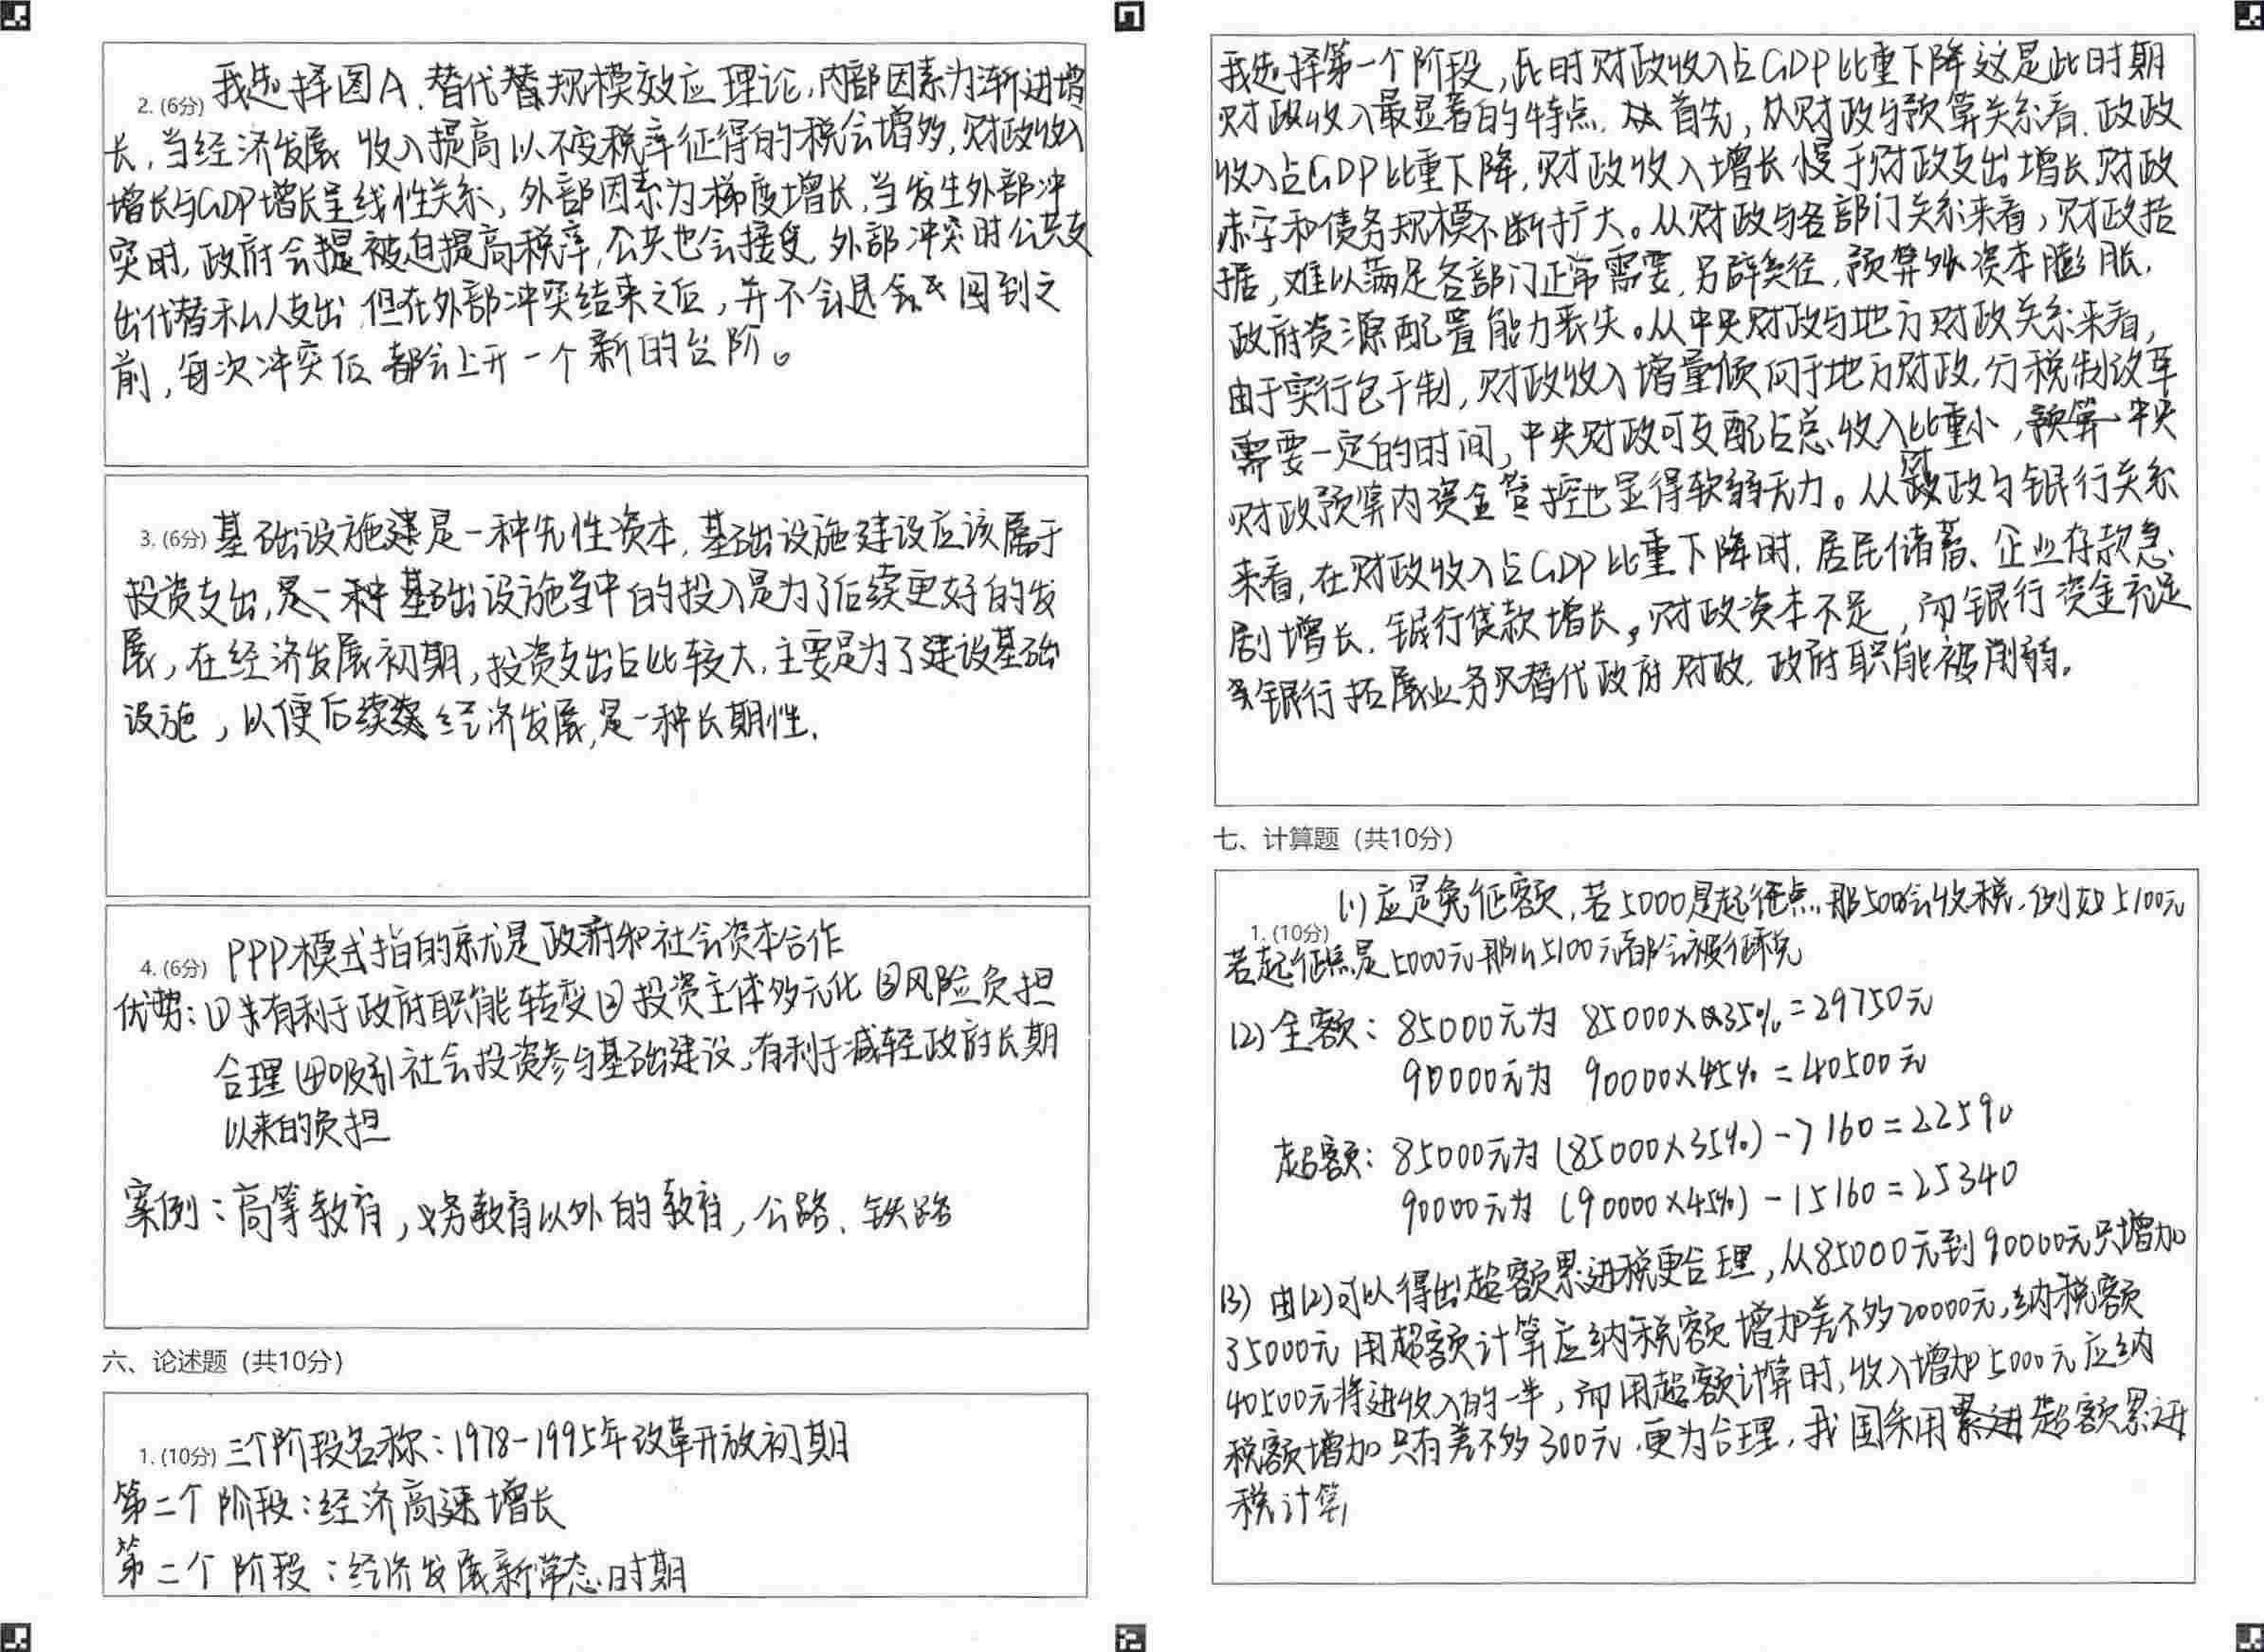 2. (6分) 我选择图A.替代替规模效应理论,内部因素为渐进增
长,当经济发展 收入提高以不变税率征得的税会增多,财政收入
增长与GDP增长呈线性关系,外部因素为梯度增长,当发生外部冲
突时,政府会提被迫提高税率,公共也会接受,外部冲突时公共支
出代替私人支出,但在外部冲突结束之后,并不会退回到之
前,每次冲突后都会上升一个新的台阶。
3. (6分) 基础设施建是一种先性资本,基础设施建设应该属于
投资支出,是一种基础设施当中的投入是为了后续更好的发
展,在经济发展初期,投资支出占比较大,主要是为了建设基础
设施,以便后续经济发展,是一种长期性.
4. (6分) PPP模式指的就是政府和社会资本合作
优势:①有利于政府职能转变②投资主体多元化③风险负担
合理④吸引社会投资参与基础建设,有利于减轻政府长期
以来的负担
案例:高等教育,义务教育以外的教育,公路、铁路
六、论述题(共10分)
1. (10分) 三个阶段名称:1978-1995年改革开放初期
第二个阶段:经济高速增长
第二个阶段:经济发展新常态时期
我选择第一个阶段,此时财政收入占GDP比重下降这是此时期
财政收入最显著的特点.首先,从财政与预算关系看.政政
收入占GDP比重下降,财政收入增长慢于财政支出增长,财政
赤字和债务规模不断扩大。从财政与各部门关系来看,财政拮
据,难以满足各部门正常需要,另辟奚径,预算外资本膨胀,
政府资源配置能力丧失。从中央财政与地方财政关系来看,
由于实行包干制,财政收入增量倾向于地方财政,分税制改革
需要一定的时间,中央财政可支配占总收入比重小,预算中央
财政预算内资金管控也显得软弱无力。从财政与银行关系
来看,在财政收入占GDP比重下降时,居民储蓄、企业存款急
剧增长,银行贷款增长,财政资本不足,而银行资金充足
银行拓展业务又替代政府财政,政府职能被削弱。
七、计算题(共10分)
1. (10分) (1)应是免征额,若5000是起征点.那5000会收税,例如5100元
若起征点是5000元那么5100元都会被征税
(2)全额:85000元为 85000×35%=29750元
90000元为 90000×45%=40500元
超额:85000元为(85000×35%)-7160=22590
90000元为(90000×45%)-15160=25340
(3) 由(2)可以得出超额累进税更合理,从85000元到90000元只增加
35000元 用超额计算应纳税额增加差不多20000元,纳税额
40500元将进收入的一半,而用超额计算时,收入增加5000元应纳
税额增加只有差不多300元.更为合理,我国采用累进超额累进
税计算